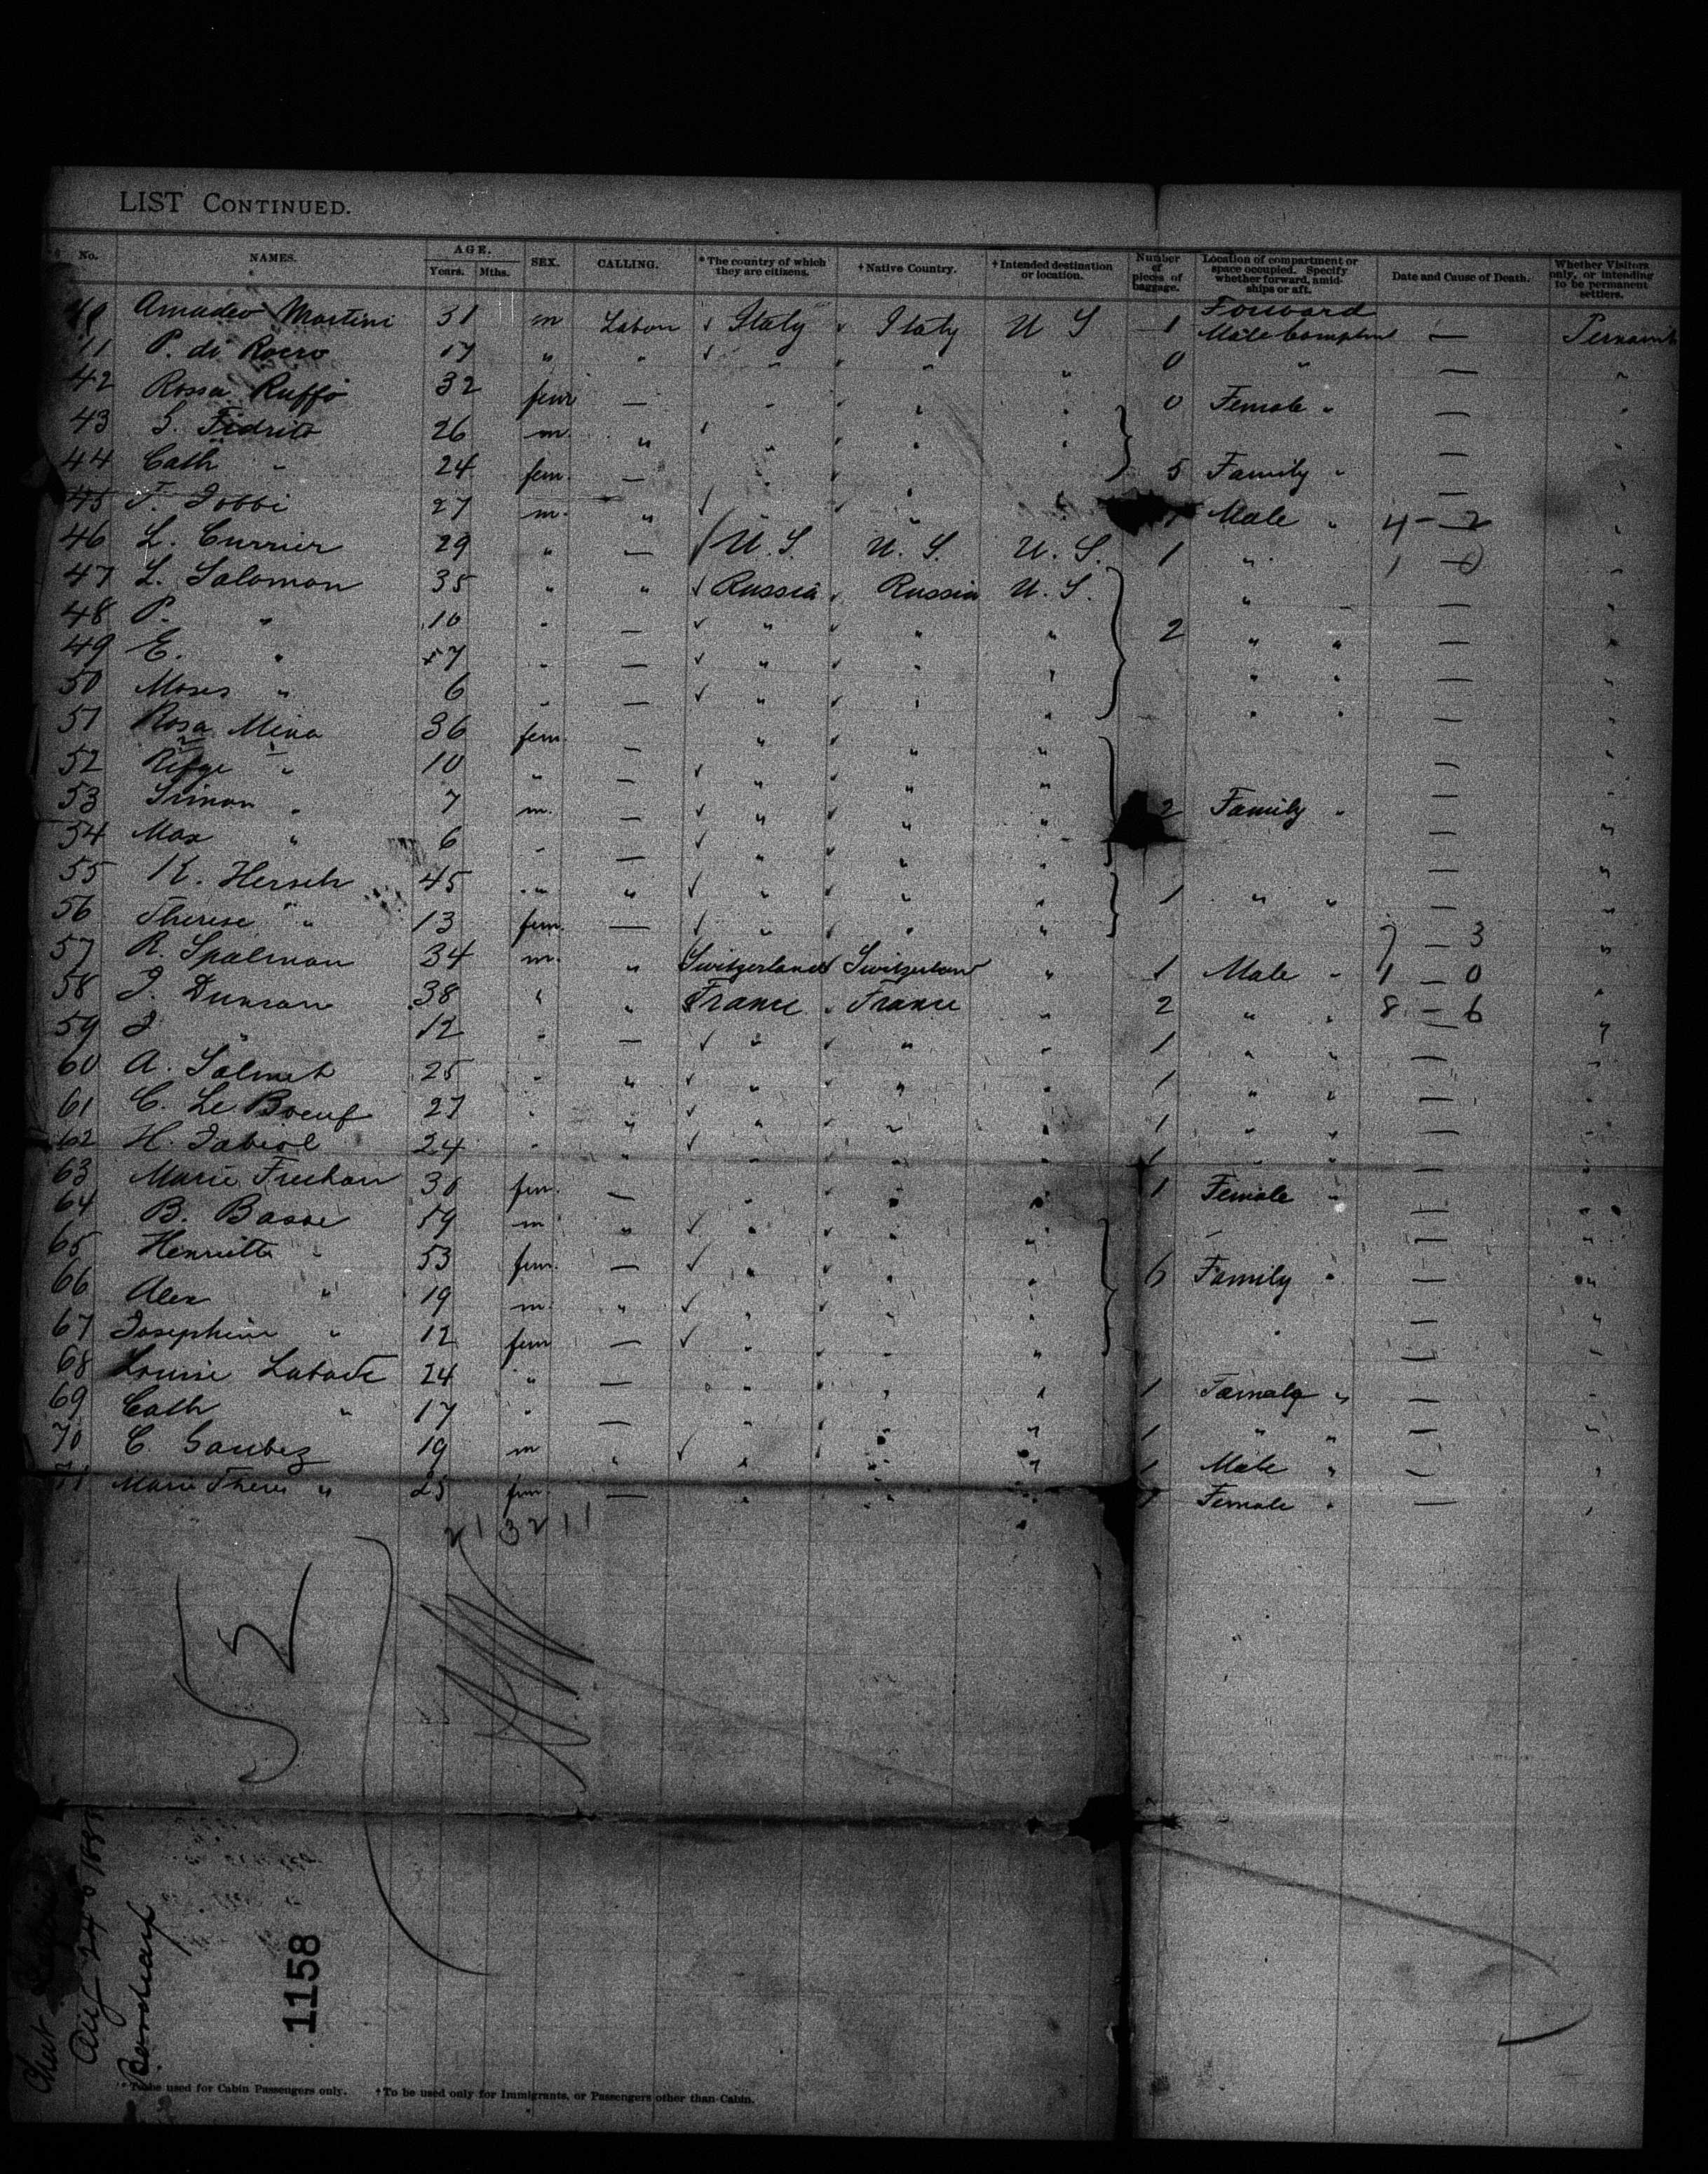 LIST CONTINUED.
No. NAMES. AGE. Years. Mths. SEX. CALLING. * The country of which they are citizens. † Native Country. † Intended destination or location. Number of pieces of baggage. Location of compartment or space occupied. Specify whether forward, amidships or aft. Date and Cause of Death. Whether Visitors only, or intending to be permanent settlers.
Forward
40 Amadeo Martini 31 m Labor ✓ Italy ✓ Italy U S 1 Male —
P. di Rocco 17 " " ✓ " " " 0 " — "
42 Rossa Ruffo 32 fem — " " " 0 Female " — "
43 S. Fidrito 26 m. " " " " — "
44 Cath " 24 fem — " " " 5 Family " — "
45 F. Jobbi 27 m. " ✓ " " " Male " 4 - 2 "
46 L. Currier 29 " — U. S. U. S. U. S. 1 " 1 - 0 "
47 L. Salomon 35 " " ✓ Russia ✓ Russia U. S. " — "
48 P. " 10 " — ✓ " ✓ " " 2 " " — "
49 E. " 7 " — ✓ " ✓ " " " " — "
50 Moses " 6 " — ✓ " ✓ " " " " — "
51 Rosa Mina 36 fem. — " ✓ " " — "
52 " 10 " — ✓ " ✓ " " — "
53 Simon " 7 m. — ✓ " ✓ " " 2 Family " — "
54 Max " 6 " — ✓ " ✓ " " — "
55 K. Hersch 45 " " ✓ " ✓ " " 1 " " — "
56 Therese " 13 fem. — ✓ " ✓ " " 7 - 3 "
57 R. Spalman 34 m. " Switzerland Switzerland " 1 Male " 1 - 0 "
58 J. Dunson 38 " " France France " 2 " " 8 - 6 "
59 J " 12 " — ✓ " ✓ " " 1 " " — "
60 A. Salmet 25 " " ✓ " " " 1 " " — "
61 C. Le Boeuf 27 " " ✓ " " " 1 " " — "
62 H. Jabiol 24 " " ✓ " " " 1 " " — "
63 Marie 30 fem. — " " " 1 Female " — "
64 B. Basse 59 m " ✓ " " " — "
65 Henriette " 53 fem. — ✓ " " " 6 Family " — "
66 Alex " 19 m. " ✓ " ✓ " " — "
67 Josephine " 12 fem — ✓ " " " — "
68 Louise Labade 24 " — " " " 1 Female " — "
69 Cath " 17 " — " " " 1 " " — "
70 C. Saubez 19 m " ✓ " " " 1 Male " — "
71 Marie " 25 fem. — " " " Female " — "
213211
52
Aug 24
Bordeaux
1158
* To be used for Cabin Passengers only. † To be used only for Immigrants, or Passengers other than Cabin.